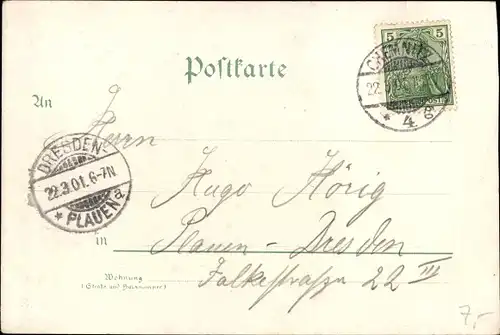 Postkarte
5 5
CHEMNITZ
4
g
An
Herrn
DRESDEN-
22.3.01.6-7N
* PLAUEN a
Hugo Hörig
in Plauen-Dresden
Wohnung
(Straße und Hausnummer)
Falkestraße 22 III
7,-